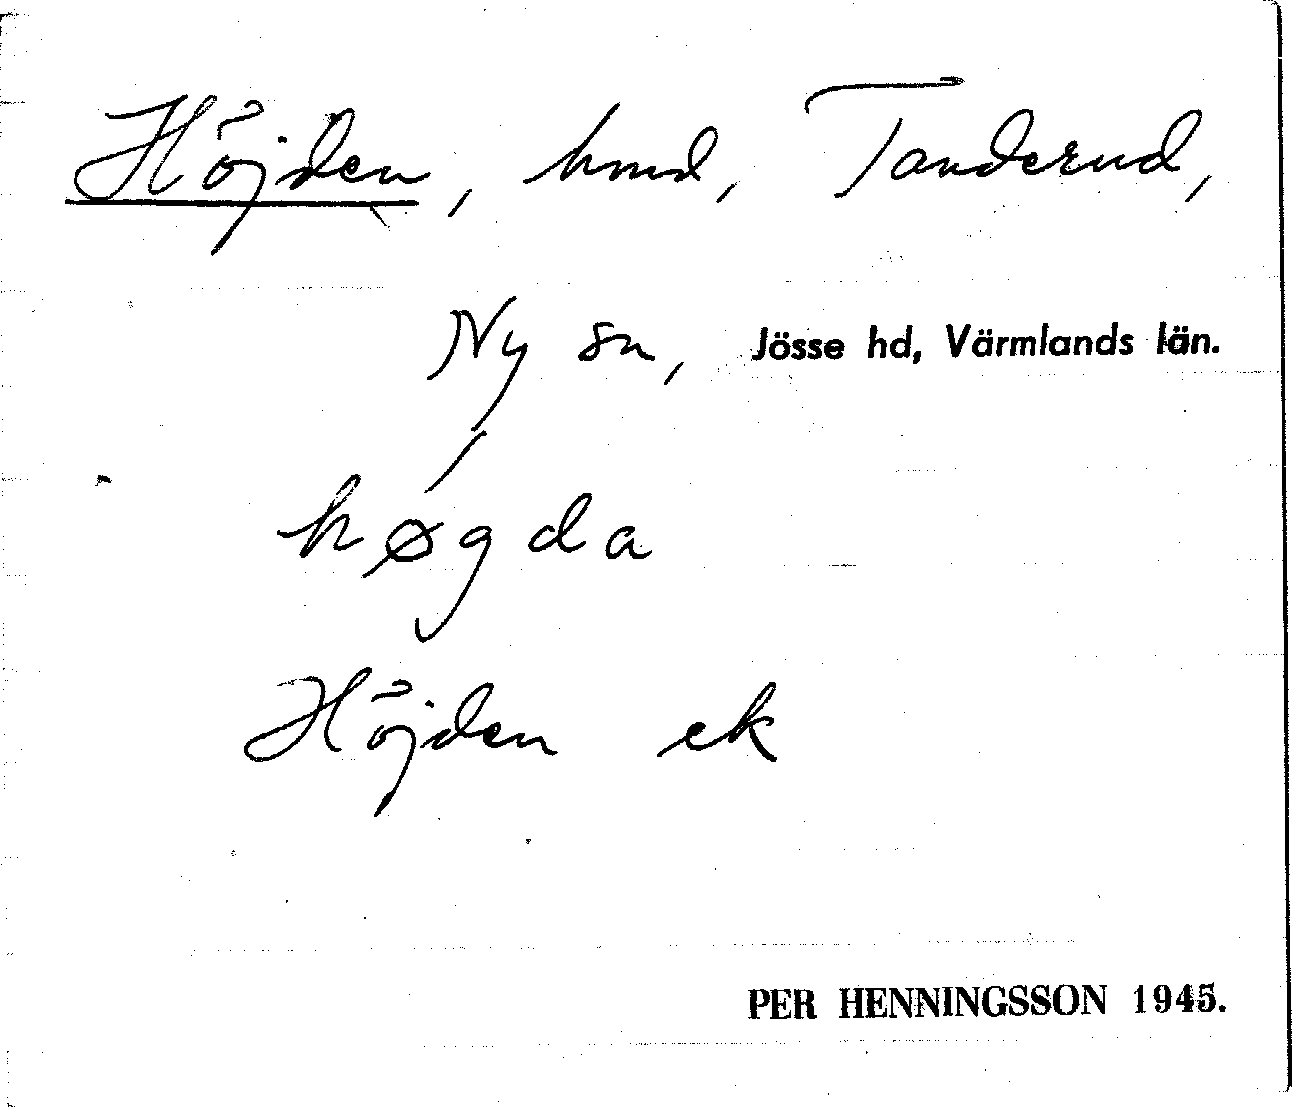 Höjden, hmd, Tanderud,
Ny sn, Jösse hd, Värmlands län.
høgda
Höjden ek
PER HENNINGSSON 1945.